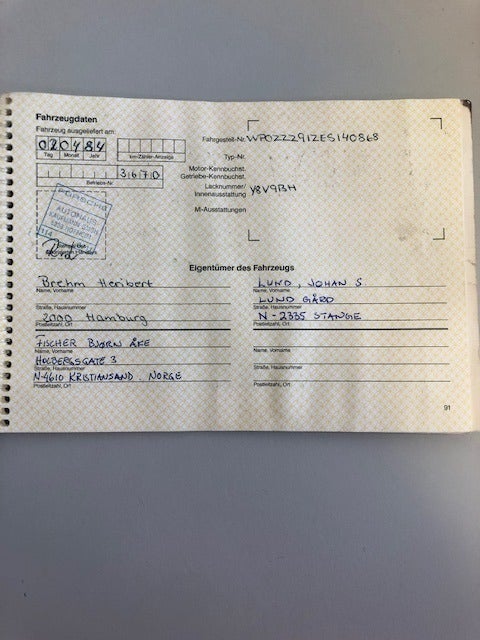 Fahrzeugdaten
Fahrzeug ausgeliefert am:
020484
Tag Monat Jahr
km-Zähler-Anzeige
31670
Betriebs-Nr.
PORSCHE
AUTOHAUS
114
Fahrgestell-Nr. WP0ZZZ91ZES140868
Typ-Nr.
Motor-Kennbuchst.
Getriebe-Kennbuchst.
Lacknummer/
Innenausstattung Y8V9BH
M-Ausstattungen
Eigentümer des Fahrzeugs
Brehm Heribert
Name, Vorname
Straße, Hausnummer
2000 Hamburg
Postleitzahl, Ort
FISCHER BJØRN ÅGE
Name, Vorname
HOLBERGSGATE 3
Straße, Hausnummer
N-4610 KRISTIANSAND. NORGE
Postleitzahl, Ort
LUND, JOHAN S
Name, Vorname
LUND GÅRD
Straße, Hausnummer
N-2335 STANGE
Postleitzahl, Ort
Name, Vorname
Straße, Hausnummer
Postleitzahl, Ort
91